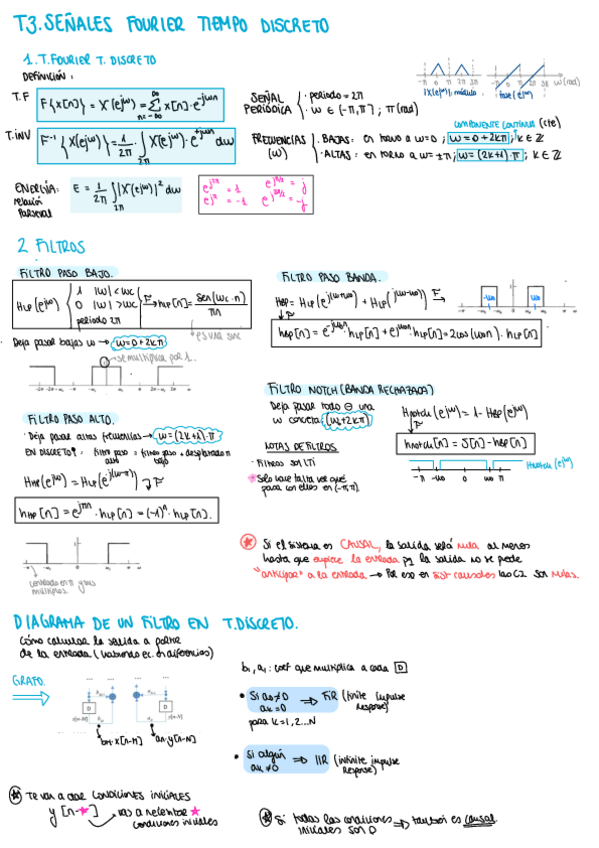 T3. SEÑALES FOURIER TIEMPO DISCRETO
1. T. FOURIER T. DISCRETO
Definición:
T.F
F{x[n]} = X(e^jω) = Σ_{n=-∞}^{∞} x[n]·e^-jωn
T.INV
F^-1{X(e^jω)} = 1/2π ∫_2π X(e^jω)·e^+jωn dω
SEÑAL PERIÓDICA
· periodo = 2π
· ω ∈ (-π,π]; π(rad)
|X(e^jω)|: módulo
fase(e^jω)
ω(rad)
COMPONENTE CONTINUA (cte)
FRECUENCIAS (ω)
· BAJAS: en torno a ω=0; ω=0+2kπ; k∈Z
· ALTAS: en torno a ω=±π; ω=(2k+1)·π; k∈Z
ENERGÍA:
relación
Parseval
E = 1/2π ∫_2π |X(e^jω)|² dω
e^j2π = 1 e^jπ/2 = j
e^jπ = -1 e^j3π/2 = -j
2 FILTROS
FILTRO PASO BAJO.
H_LP(e^jω) { 1 |ω|<ωc
0 |ω|>ωc
periodo 2π
F→ h_LP[n] = sen(ωc·n)/πn
es una sinc
Deja pasar bajas ω → ω=0+2kπ
se multiplica por 1...
FILTRO PASO BANDA.
H_BP = H_LP(e^j(ω+ω0)) + H_LP(e^j(ω-ω0)) F→
-ω0 ω0
h_BP[n] = e^-jω0n·h_LP[n] + e^jω0n·h_LP[n] = 2cos(ω0n)·h_LP[n]
FILTRO PASO ALTO.
· Deja pasar altas frecuencias → ω=(2k+1)·π
EN DISCRETO: filtro paso alto = filtro paso bajo + desplazado π
H_HP(e^jω) = H_LP(e^j(ω-π)) F
h_HP[n] = e^jπn·h_LP[n] = (-1)^n·h_LP[n].
centrado en π y sus múltiplos
FILTRO NOTCH (BANDA RECHAZADA)
Deja pasar todo ⊖ una
ω concreta (ω0+2kπ)
H_notch(e^jω) = 1 - H_BP(e^jω)
F
h_notch[n] = δ[n] - h_BP[n]
H_notch(e^jω)
-π -ω0 0 ω0 π
NOTAS DE FILTROS
· Filtros son LTI
* Solo hace falta ver qué
pasa con ellos en (-π,π].
* Si el sistema es CAUSAL, la salida será nula al menos
hasta que empiece la entrada pq la salida no se puede
"anticipar" a la entrada → Por eso en sist causales las C.I. son nulas.
DIAGRAMA DE UN FILTRO EN T.DISCRETO.
Cómo calcular la salida a partir
de la entrada (usando ec. en diferencias)
GRAFO.
D
D
x[n-M]
y[n-N]
bM·x[n-M] aN·y[n-N]
b1, a1: coef que multiplica a cada D
• Si a0≠0
ak=0
⇒ FIR (finite impulse response)
para k=1,2...N
• Si algún
ak≠0
⇒ IIR (infinite impulse response)
* Te van a dar CONDICIONES INICIALES
y[n-*]
vas a necesitar *
condiciones iniciales
* Si todas las condiciones
iniciales son 0
⇒ también es causal